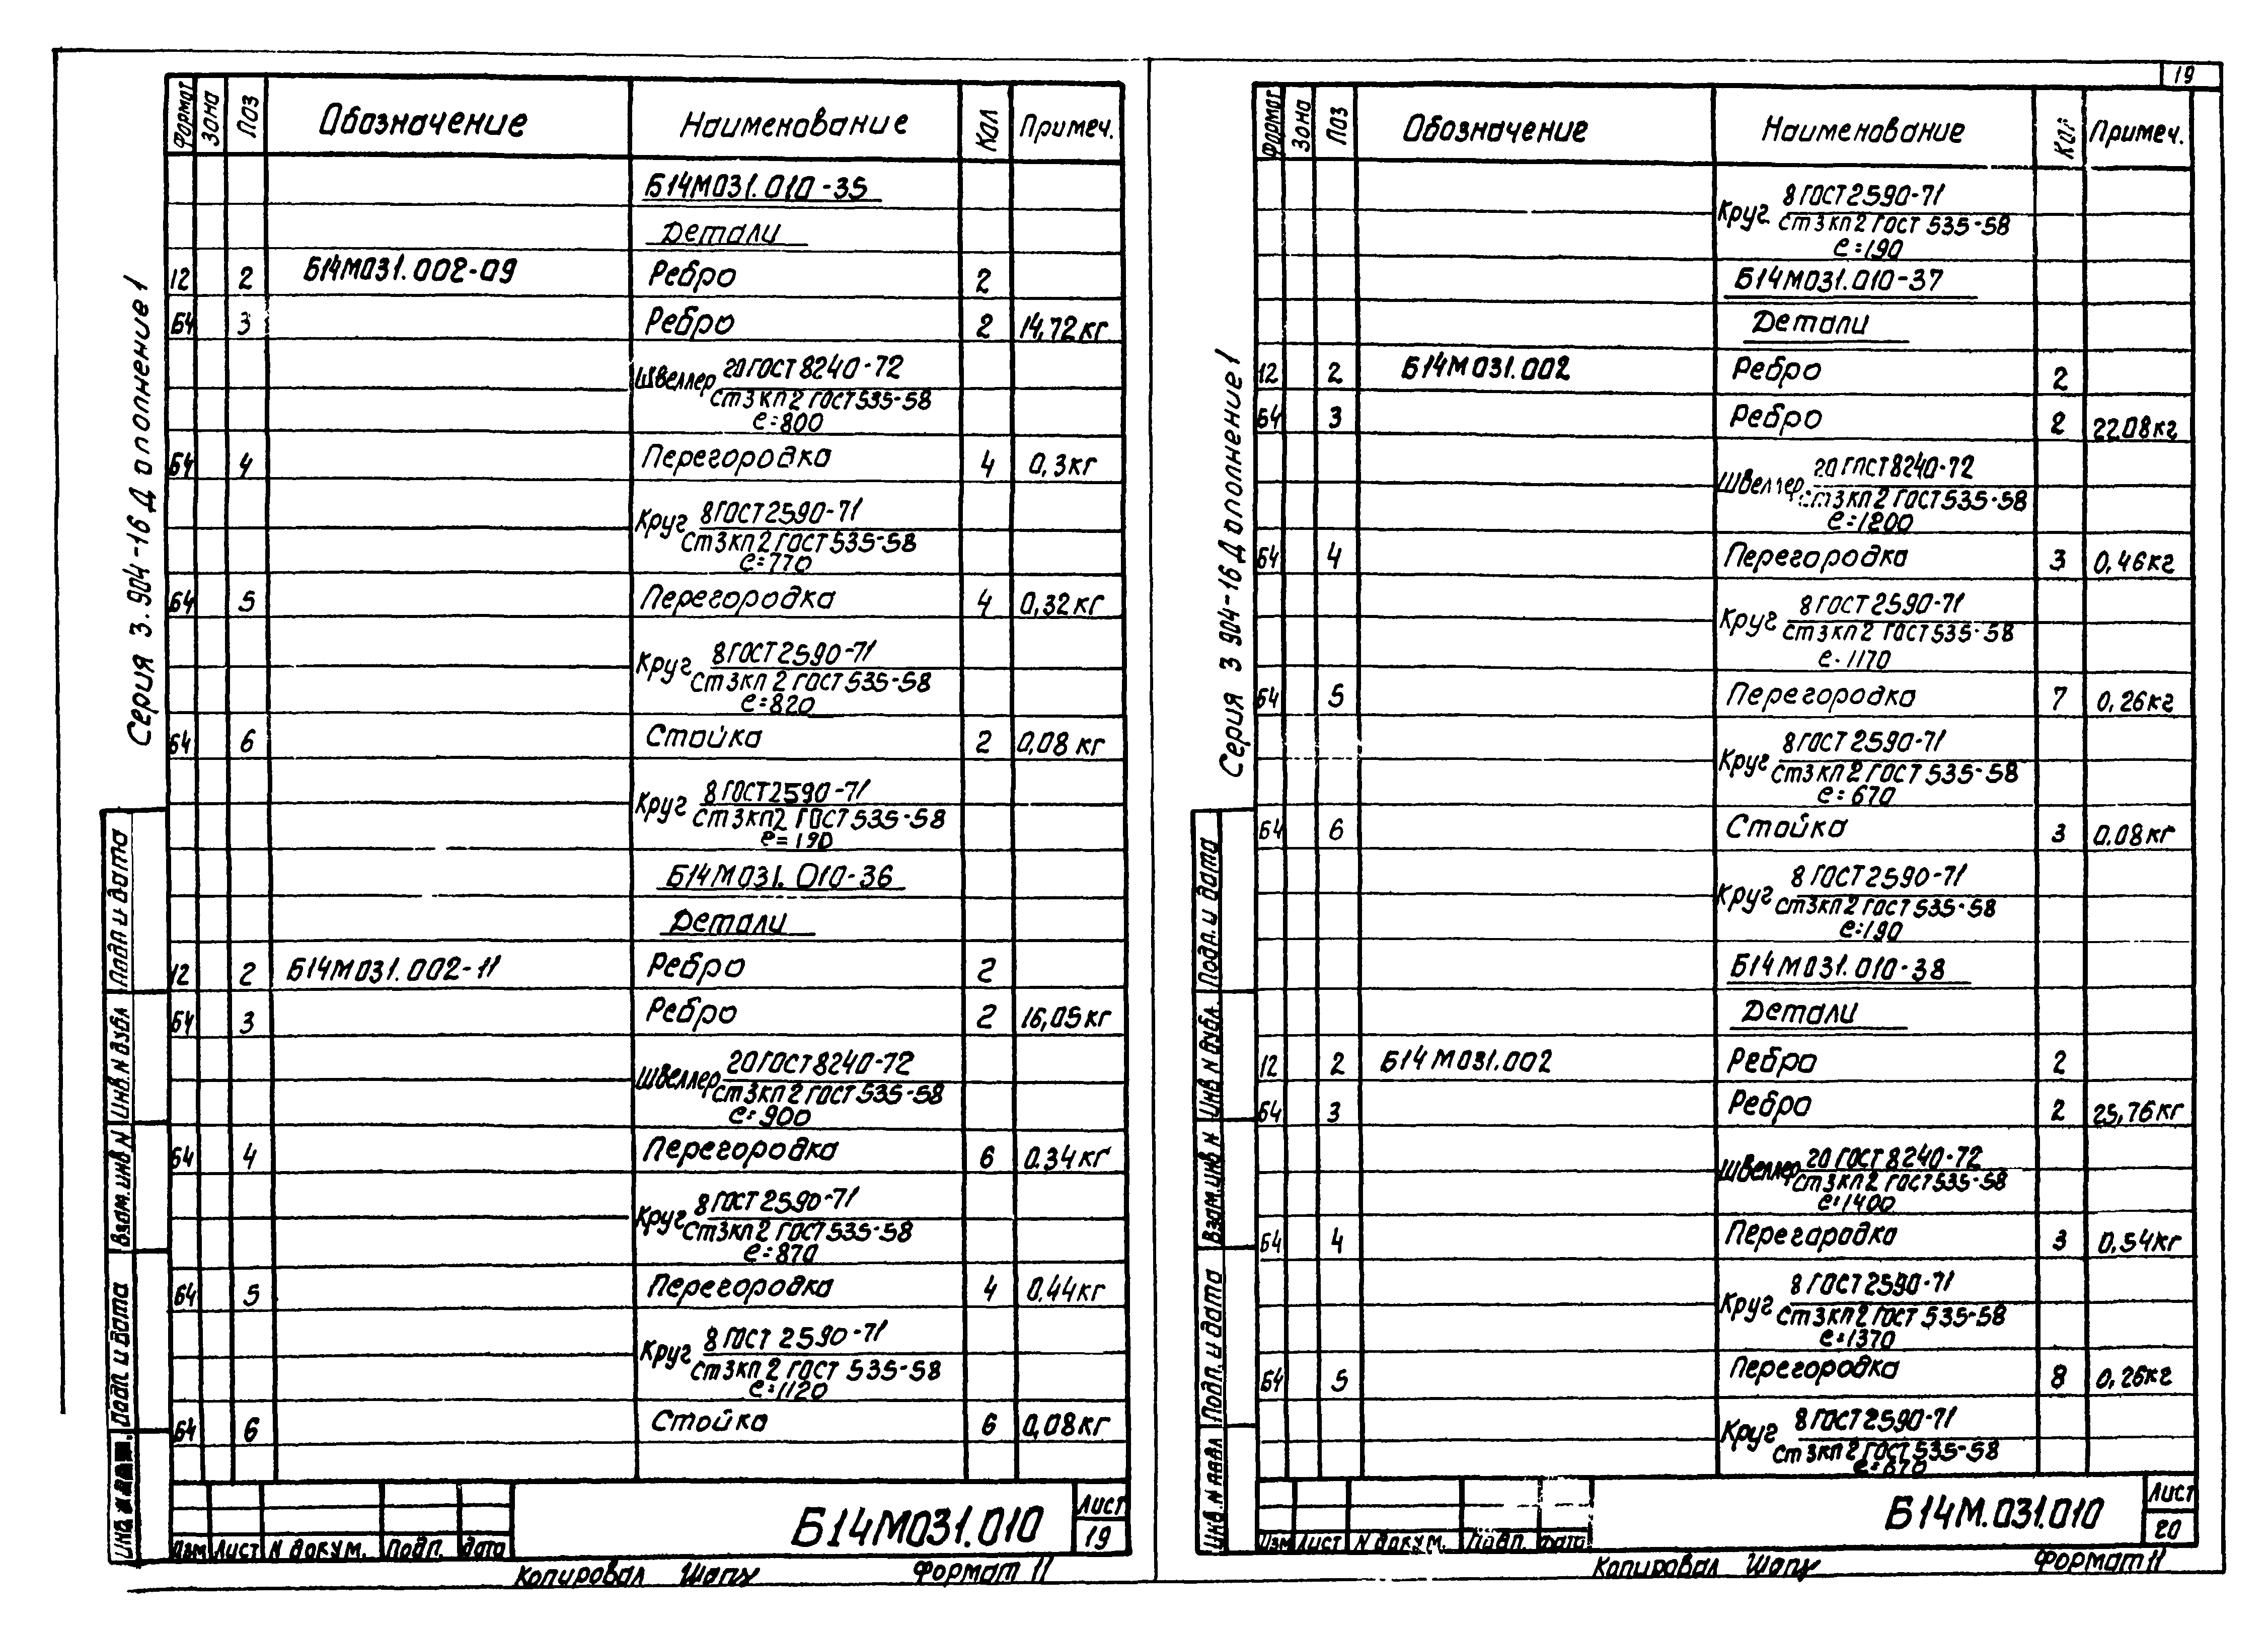 19
Серия 3.904-16 Дополнение 1
Формат Зона Поз Обозначение Наименование Кол Примеч.
Б14М031.010-35
Детали
12 2 Б14М031.002-09 Ребро 2
Б4 3 Ребро 2 14,72кг
Швеллер 20 ГОСТ 8240-72
ст3кп2 ГОСТ 535-58
е=800
Б4 4 Перегородка 4 0,3кг
Круг 8 ГОСТ 2590-71
ст3кп2 ГОСТ 535-58
е=770
Б4 5 Перегородка 4 0,32кг
Круг 8 ГОСТ 2590-71
ст3кп2 ГОСТ 535-58
е=820
Б4 6 Стойка 2 0,08кг
Круг 8 ГОСТ 2590-71
ст3кп2 ГОСТ 535-58
е=190
Б14М031.010-36
Детали
12 2 Б14М031.002-11 Ребро 2
Б4 3 Ребро 2 16,05кг
Швеллер 20 ГОСТ 8240-72
ст3кп2 ГОСТ 535-58
е=900
Б4 4 Перегородка 6 0.34кг
Круг 8 ГОСТ 2590-71
ст3кп2 ГОСТ 535-58
е=870
Б4 5 Перегородка 4 0,44кг
Круг 8 ГОСТ 2590-71
ст3кп2 ГОСТ 535-58
е=1120
Б4 6 Стойка 6 0,08кг
Подп и дата
Инв. N дубл
Взам. инв N
Подп. и дата
Инв.
Изм Лист N докум. Подп. дата
Б14М031.010
Лист
19
Копировал Формат 11
Серия 3 904-16 Дополнение 1
Формат Зона Поз Обозначение Наименование Кол Примеч.
Круг 8 ГОСТ 2590-71
ст3кп2 ГОСТ 535-58
е=190
Б14М031.010-37
Детали
12 2 Б14М031.002 Ребро 2
Б4 3 Ребро 2 22.08кг
Швеллер 20 ГОСТ 8240-72
ст3кп2 ГОСТ 535-58
е=1200
Б4 4 Перегородка 3 0,46кг
Круг 8 ГОСТ 2590-71
ст3кп2 ГОСТ 535-58
е.1170
Б4 5 Перегородка 7 0,26кг
Круг 8 ГОСТ 2590-71
ст3кп2 ГОСТ 535-58
е=670
Б4 6 Стойка 3 0.08кг
Круг 8 ГОСТ 2590-71
ст3кп2 ГОСТ 535-58
е=190
Б14М031.010-38
Детали
12 2 Б14М031.002 Ребро 2
Б4 3 Ребро 2 25,76кг
Швеллер 20 ГОСТ 8240-72
ст3кп2 ГОСТ 535-58
е=1400
Б4 4 Перегородка 3 0,54кг
Круг 8 ГОСТ 2590-71
ст3кп2 ГОСТ 535-58
е=1370
Б4 5 Перегородка 8 0,26кг
Круг 8 ГОСТ 2590-71
ст3кп2 ГОСТ 535-58
е=670
Подп. и дата
Инв N дубл.
Взам. инв N
Подп. и дата
Инв. N подл
Изм Лист N докум. Подп. дата
Б14М.031.010
Лист
20
Копировал Формат 11